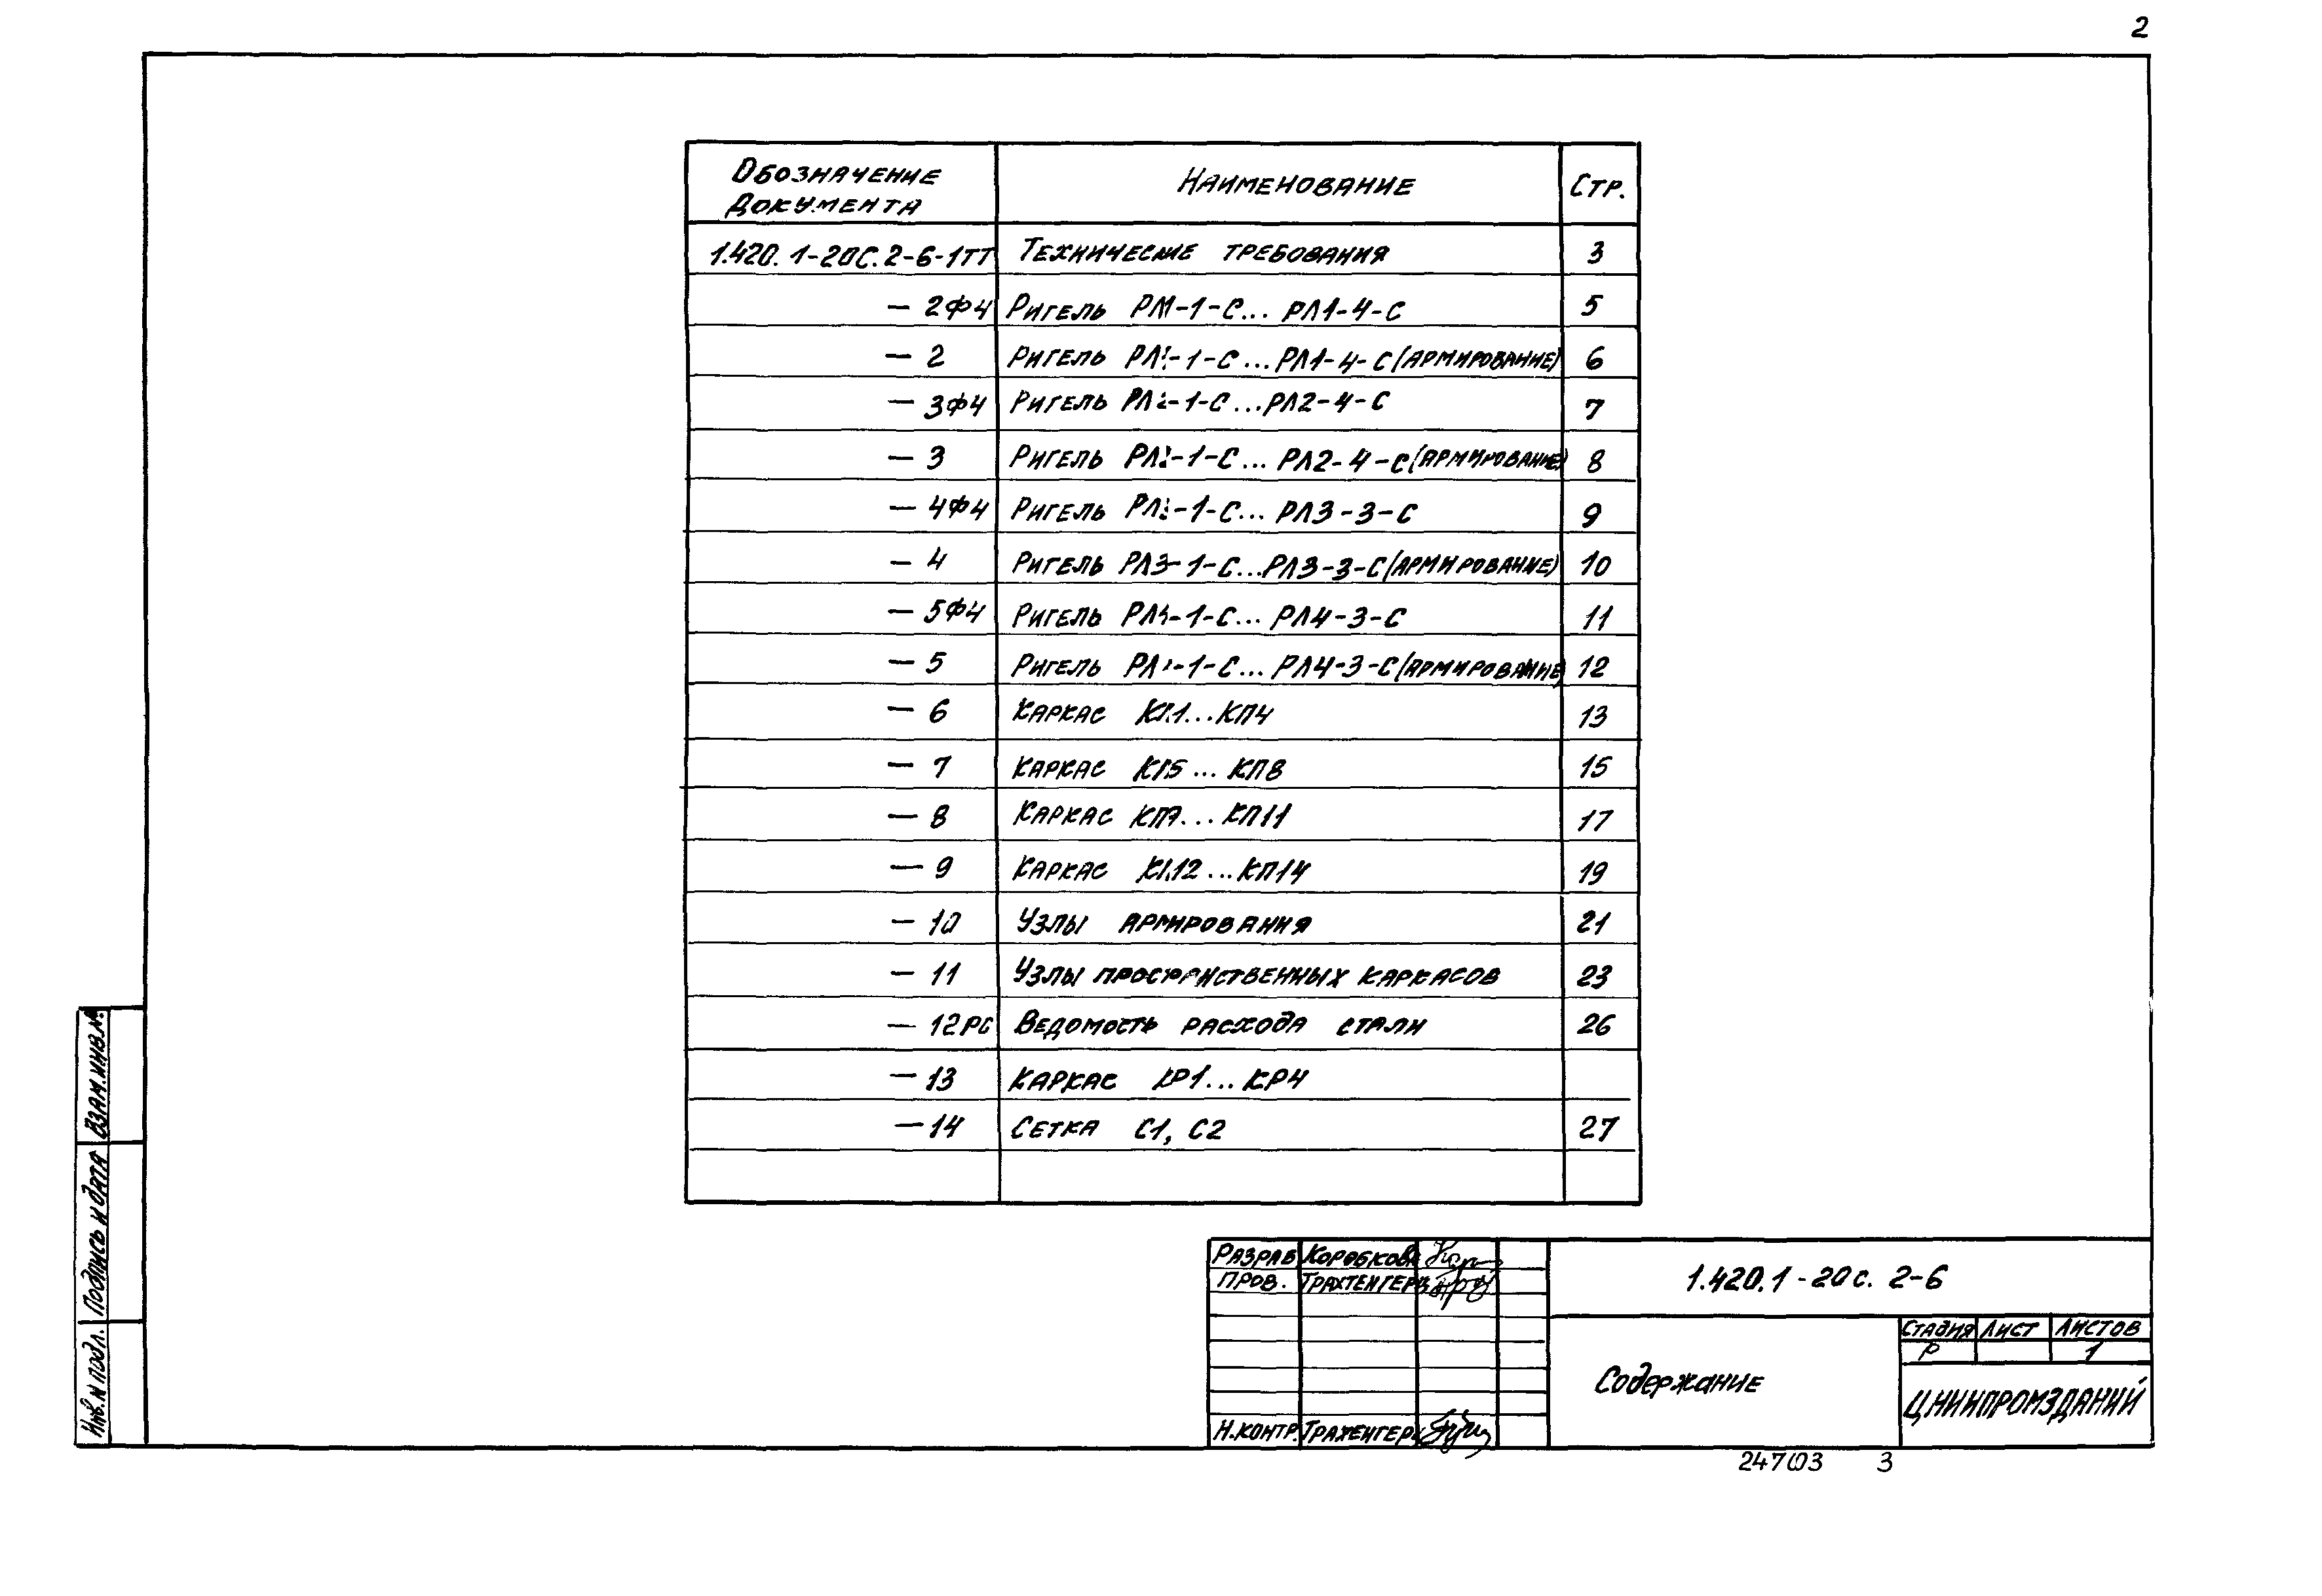 2
Обозначение документа Наименование Стр.
1.420.1-20с.2-6-1ТТ Технические требования 3
— 2Ф4 Ригель РЛ1-1-С... РЛ1-4-С 5
— 2 Ригель РЛ1-1-С... РЛ1-4-С (армирование) 6
— 3Ф4 Ригель РЛ2-1-С... РЛ2-4-С 7
— 3 Ригель РЛ2-1-С... РЛ2-4-С (армирование) 8
— 4Ф4 Ригель РЛ3-1-С... РЛ3-3-С 9
— 4 Ригель РЛ3-1-С... РЛ3-3-С (армирование) 10
— 5Ф4 Ригель РЛ4-1-С... РЛ4-3-С 11
— 5 Ригель РЛ4-1-С... РЛ4-3-С (армирование) 12
— 6 Каркас КП1...КП4 13
— 7 Каркас КП5... КП8 15
— 8 Каркас КП9... КП11 17
— 9 Каркас КП12...КП14 19
— 10 Узлы армирования 21
— 11 Узлы пространственных каркасов 23
— 12РС Ведомость расхода стали 26
— 13 Каркас КР1... КР4
— 14 Сетка С1, С2 27
Разраб Коробкова
Пров. Трахтенгерц
Н.контр. Трахтенгерц
1.420.1-20с. 2-6
Содержание
Стадия Лист Листов
Р 1
ЦНИИПРОМЗДАНИЙ
3
Взам.инв.№
Подпись и дата
Инв.№ подл.